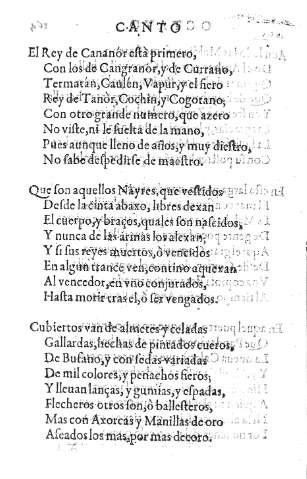 CANTO
El Rey de Cananòr està primero,
Con los de Cangranòr, y de Currano,
Termatàn, Caulèn, Vapùr, y el fiero
Rey de Tanòr, Cochin, y Cogotano,
Con otro grande numero, que azero
No viste, ni le suelta de la mano,
Pues aunque lleno de años, y muy diestro,
No sabe despedirse de maestro.
Que son aquellos Nàyres, que vestidos
Desde la cinta abaxo, libres dexan
El cuerpo, y braços, quales son nascidos,
Y nunca de las armas los alexan,
Y si sus reyes muertos, ò vencidos
En algun trance ven, contino aquexan
Al vencedor, en vno conjurados,
Hasta morir tras el, ò ser vengados.
Cubiertos van de almetes y celadas
Gallardas, hechas de pintados cueros,
De Bufano, y con sedas variadas
De mil colores, y penachos fieros,
Y lleuan lanças, y gumias, y espadas,
Flecheros otros son, ò ballesteros,
Mas con Axorcas y Manillas de oro
Aseados los mas, por mas decoro.